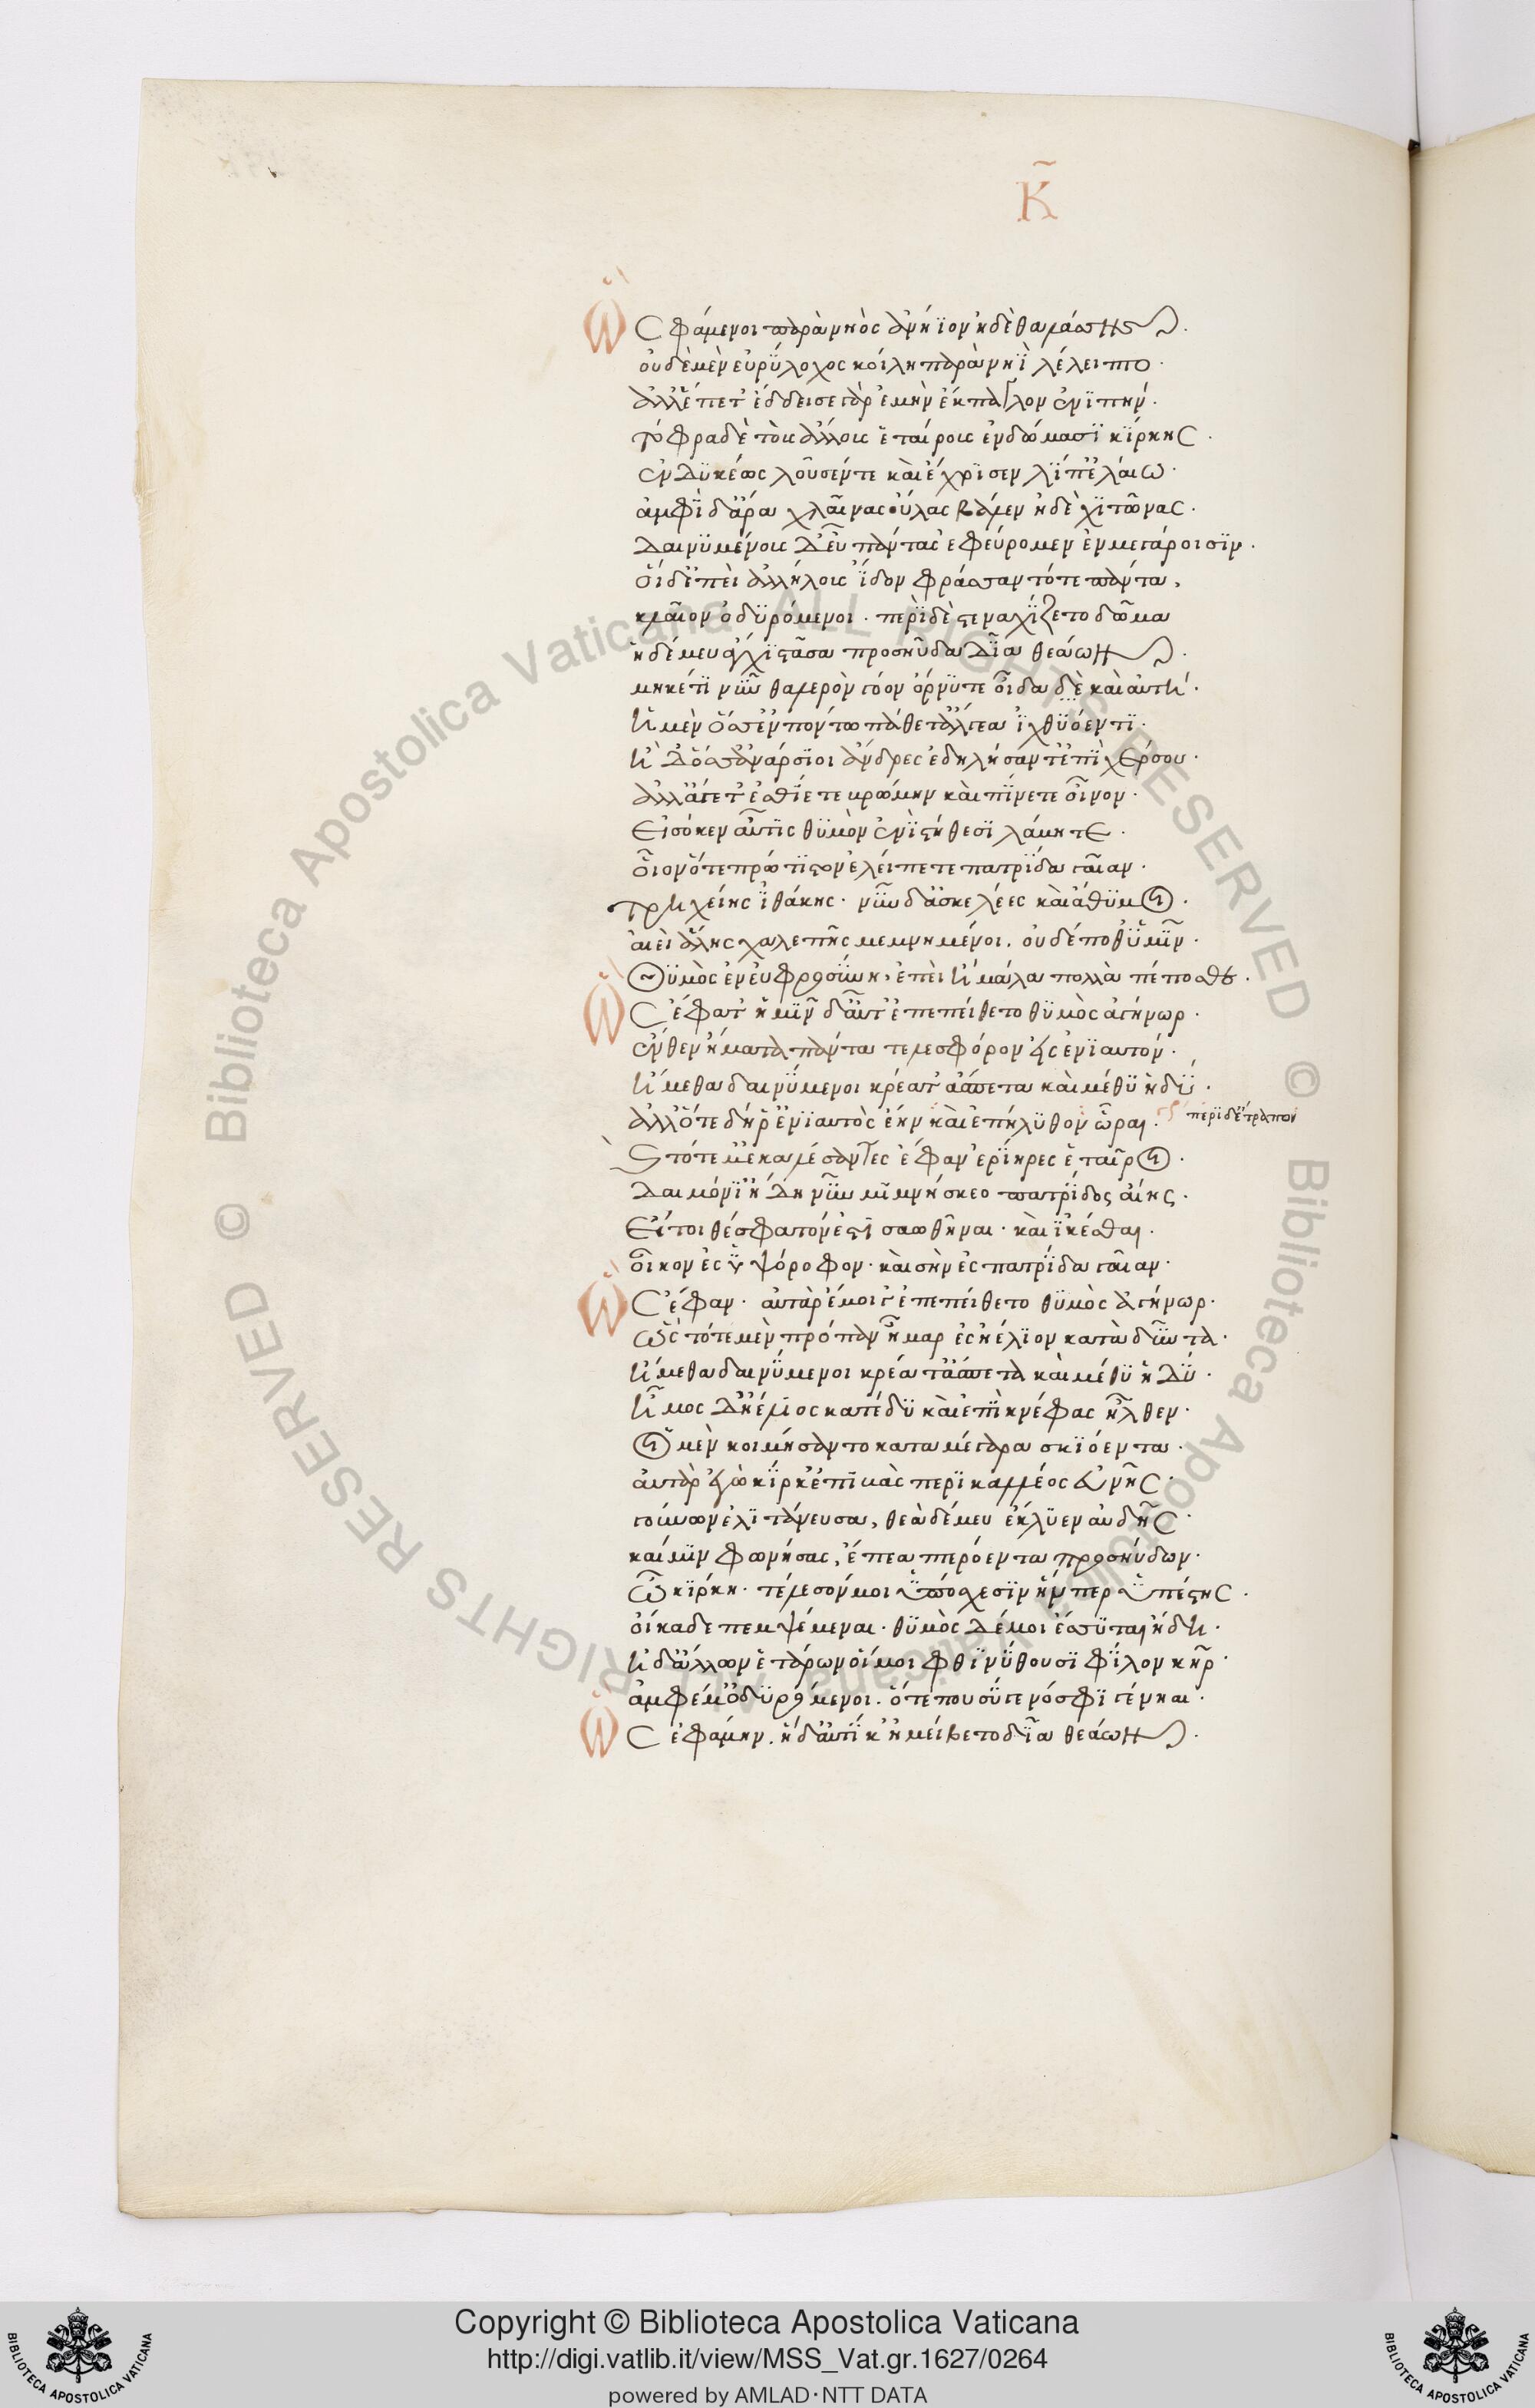 Κ̃
Ὣς φάμενοι παρὰ νηὸς ἀνήϊον ἠδὲ θαλάσσης.
οὐδὲ μὲν εὐρύλοχος κοίλῃ παρὰ νηῒ λέλειπτο·
ἀλλ' ἕπετ' ἔδδεισε γὰρ ἐμὴν ἔκπαγλον ἐνιπήν·
τόφρα δὲ τοὺς ἄλλους ἑταίρους ἐν δώμασι κίρκης·
ἐνδυκέως λοῦσέν τε καὶ ἔχρισεν λίπ' ἐλαίω·
ἀμφὶ δ' ἄρα χλαίνας οὔλας βάλεν ἠδὲ χιτῶνας·
δαινυμένους δ' εὖ πάντας ἐφεύρομεν ἐν μεγάροισιν·
οἱ δ' ἐπεὶ ἀλλήλους ἴδον φράσσαντό τε πάντα,
κλαῖον ὀδυρόμενοι· περὶ δὲ στεναχίζετο δῶμα
ἡ δέ μευ ἄγχι στᾶσα προσηύδα δῖα θεάων·
μηκέτι νῦν θαλερὸν γόον ὄρνυτε οἶδα δὲ καὶ αὐτή·
ἠμὲν ὅσ' ἐν πόντω πάθετ' ἄλγεα ἰχθυόεντι·
ἠδ' ὅσ' ἀνάρσιοι ἄνδρες ἐδηλήσαντ' ἐπὶ χέρσου·
ἀλλ' ἄγετ' ἐσθίετε βρώμην καὶ πίνετε οἶνον·
εἰσόκεν αὖτις θυμὸν ἐνὶ στήθεσι λάβητε·
οἷον ὅτε πρώτιστον ἐλείπετε πατρίδα γαῖαν·
τρηχείης ἰθάκης· νῦν δ' ἀσκελέες καὶ ἄθυμοι·
αἰεὶ ἄλης χαλεπῆς μεμνημένοι. οὐδέποθ' ὑμῖν·
θυμὸς ἐν εὐφροσύνη, ἐπεὶ ἦ μάλα πολλὰ πέποσθε·
Ὣς ἔφατ' ἡμῖν δ' αὖτ' ἐπεπείθετο θυμὸς ἀγήνωρ·
ἔνθεν ἤματα πάντα τελεσφόρον εἰς ἐνιαυτόν·
ἥμεθα δαινύμενοι κρέατ' ἄσπετα καὶ μέθυ ἡδύ·
ἀλλ' ὅτε δή ῥ' ἐνιαυτὸς ἔην καὶ ἐπήλυθον ὧραι· περὶ δ' ἔτραπον
καὶ τότε μ' ἐκκαλέσαντες ἔφαν ἐρίηρες ἑταῖροι·
δαιμόνι' ἤδη νῦν μιμνήσκεο πατρίδος αἴης·
εἴ τοι θέσφατόν ἐστι σαωθῆναι· καὶ ἱκέσθαι·
οἶκον ἐς ὑψόροφον· καὶ σὴν ἐς πατρίδα γαῖαν·
Ὣς ἔφαν· αὐτὰρ ἐμοί γ' ἐπεπείθετο θυμὸς ἀγήνωρ·
ὣς τότε μὲν πρόπαν ἦμαρ ἐς ἠέλιον καταδύντα·
ἥμεθα δαινύμενοι κρέα τ' ἄσπετα καὶ μέθυ ἡδύ·
ἦμος δ' ἠέλιος κατέδυ καὶ ἐπὶ κνέφας ἦλθεν·
οἱ μὲν κοιμήσαντο κατα μέγαρα σκιόεντα·
αὐτὰρ ἐγὼ κίρκ' ἐπιβὰς περικαλλέος εὐνῆς·
γούνων ἐλιτάνευσα, θεὰ δέ μευ ἔκλυεν αὐδῆς·
καί μιν φωνήσας, ἔπεα πτερόεντα προσηύδων·
ὦ κίρκη· τέλεσόν μοι ὑπόσχεσιν ἥν περ ὑπέστης·
οἴκαδε πεμψέμεναι· θυμὸς δέ μοι ἔσσυται ἤδη·
ἠδ' ἄλλων ἑτάρων οἵ μοι φθινύθουσι φίλον κῆρ·
ἀμφ' ἔμ' ὀδυρόμενοι. ὅτέ που σύ γε νόσφι γένηαι·
Ὣς ἐφάμην. ἡ δ' αὐτίκ' ἠμείβετο δῖα θεάων·
Copyright © Biblioteca Apostolica Vaticana
http://digi.vatlib.it/view/MSS_Vat.gr.1627/0264
powered by AMLAD·NTT DATA
BIBLIOTECA APOSTOLICA VATICANA
BIBLIOTECA APOSTOLICA VATICANA
© Biblioteca Apostolica Vaticana ALL RIGHTS RESERVED
© Biblioteca Apostolica Vaticana ALL RIGHTS RESERVED